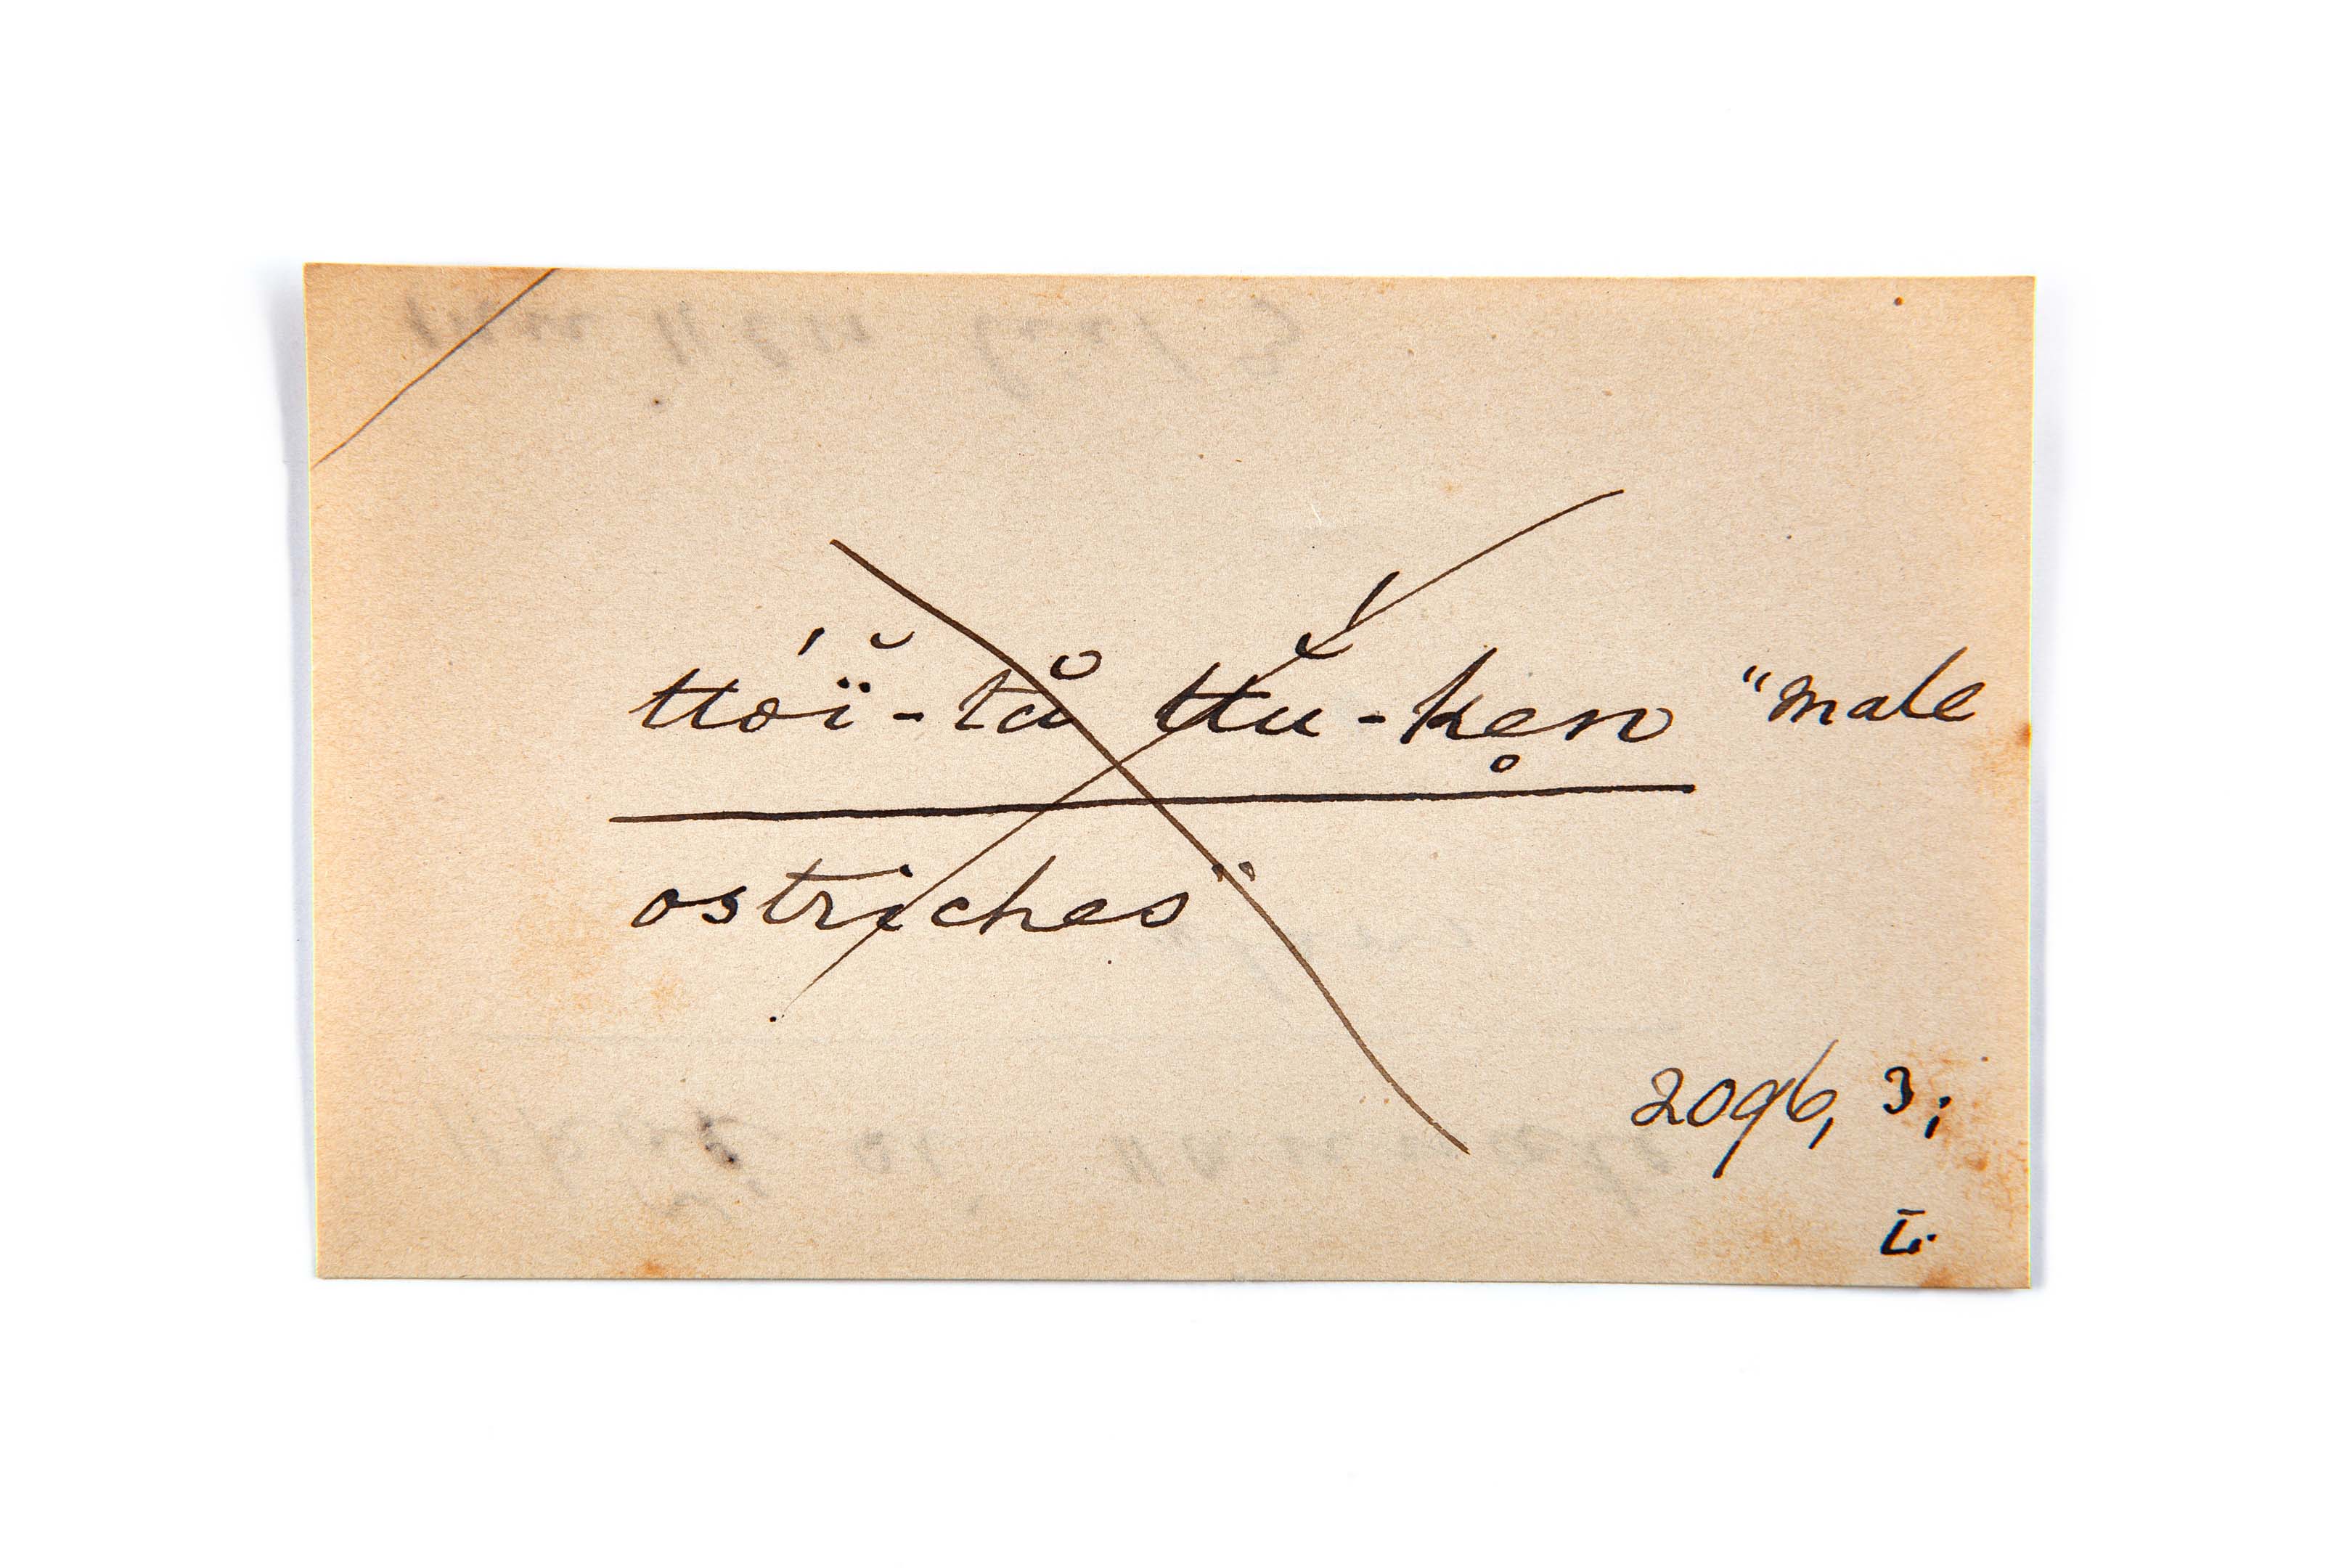 ttóï̯̆-tắ ttŭ́-ken̥ "male
ostriches"
2096, 3;
L.